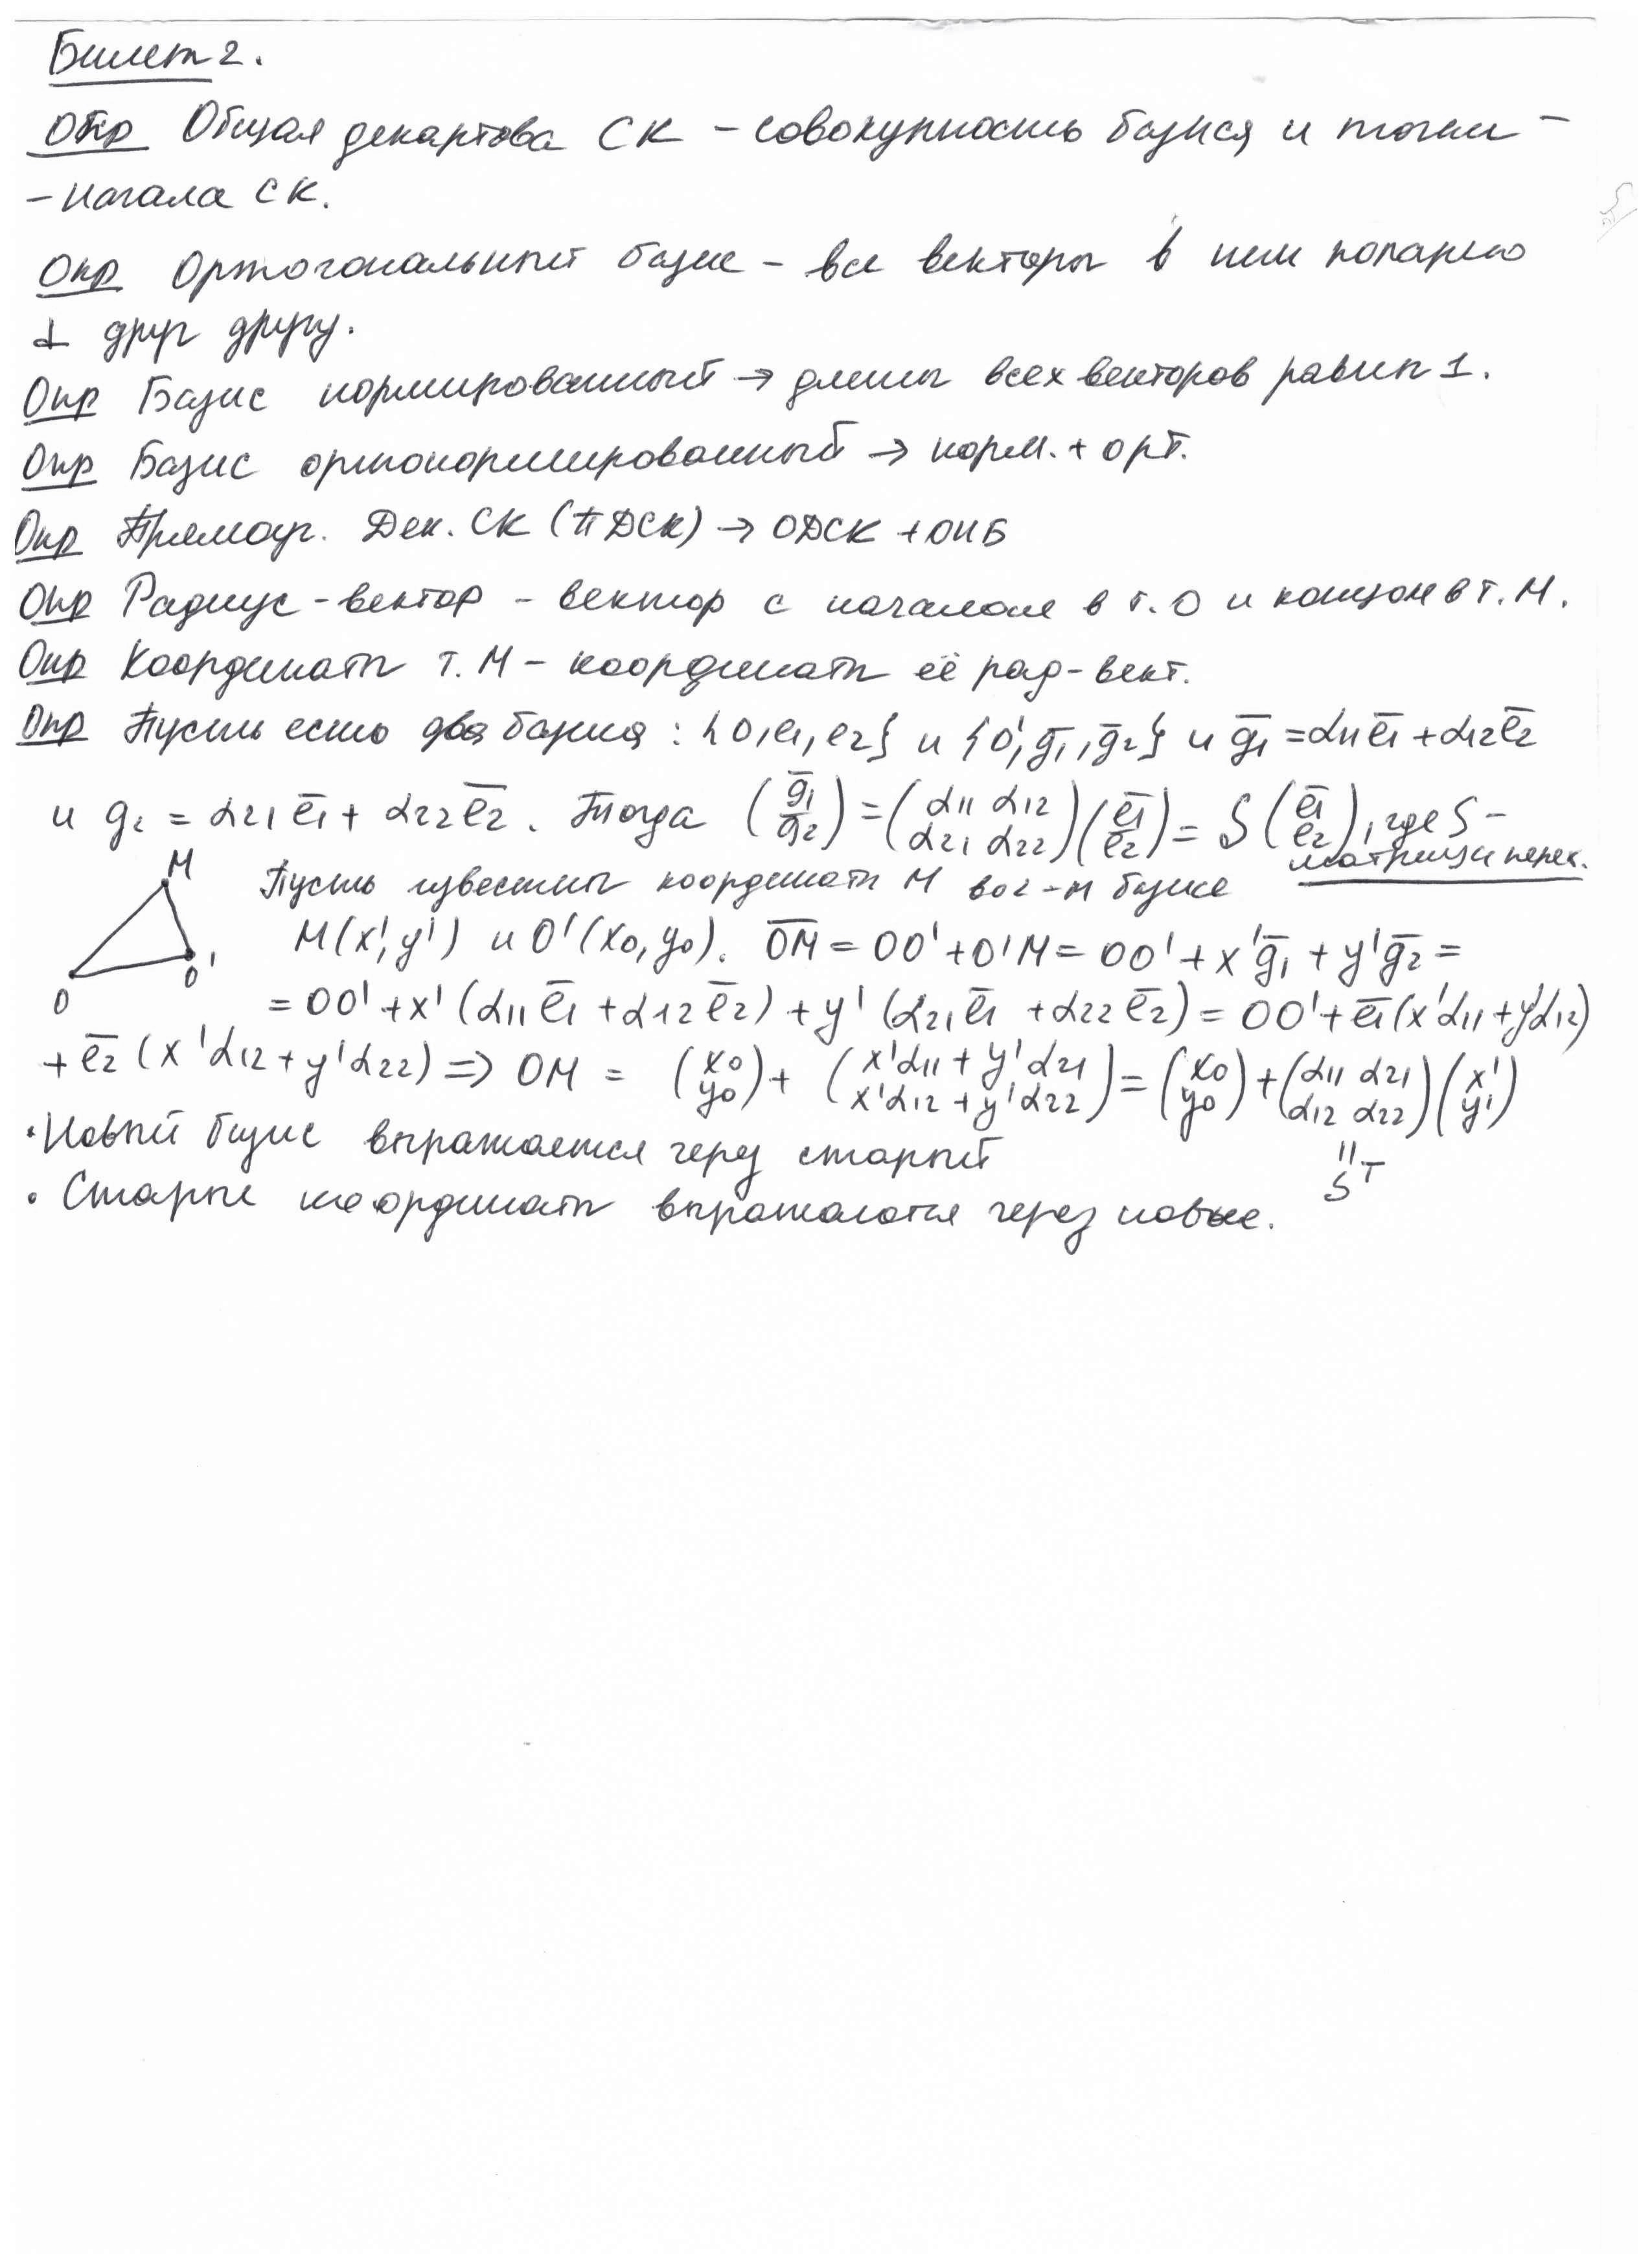 Билет 2.
Опр Общая декартова СК – совокупность базиса и точки –
– начала СК.
Опр Ортогональный базис – все векторы в нём попарно
⊥ друг другу.
Опр Базис нормированный → длины всех векторов равны 1.
Опр Базис ортонормированный → норм. + орт.
Опр Прямоуг. Дек. СК (ПДСК) → ОДСК + ОНБ
Опр Радиус-вектор – вектор с началом в т. О и концом в т. М.
Опр Координаты т. М – координаты её рад-вект.
Опр Пусть есть два базиса : {O, e₁, e₂} и {O', g̅₁, g̅₂} и g̅₁ = α₁₁e̅₁ + α₁₂e̅₂
и g₂ = α₂₁e̅₁ + α₂₂e̅₂. Тогда (g̅₁ g̅₂) = (α₁₁ α₁₂ α₂₁ α₂₂)(e̅₁ e̅₂) = S (e̅₁ e̅₂), где S –
матрица перех.
М
Пусть известны координаты М во 2-м базисе
М(x', y') и O'(x₀, y₀). O̅M̅ = OO' + O'M = OO' + x'g̅₁ + y'g̅₂ =
O O'
= OO' + x'(α₁₁e̅₁ + α₁₂e̅₂) + y'(α₂₁e̅₁ + α₂₂e̅₂) = OO' + e̅₁(x'α₁₁ + y'α₁₂)
+ e̅₂(x'α₁₂ + y'α₂₂) => OM = (x₀ y₀) + (x'α₁₁ + y'α₂₁ x'α₁₂ + y'α₂₂) = (x₀ y₀) + (α₁₁ α₂₁ α₁₂ α₂₂)(x' y')
• Новый базис выражается через старый
= Sᵀ
• Старые координаты выражаются через новые.